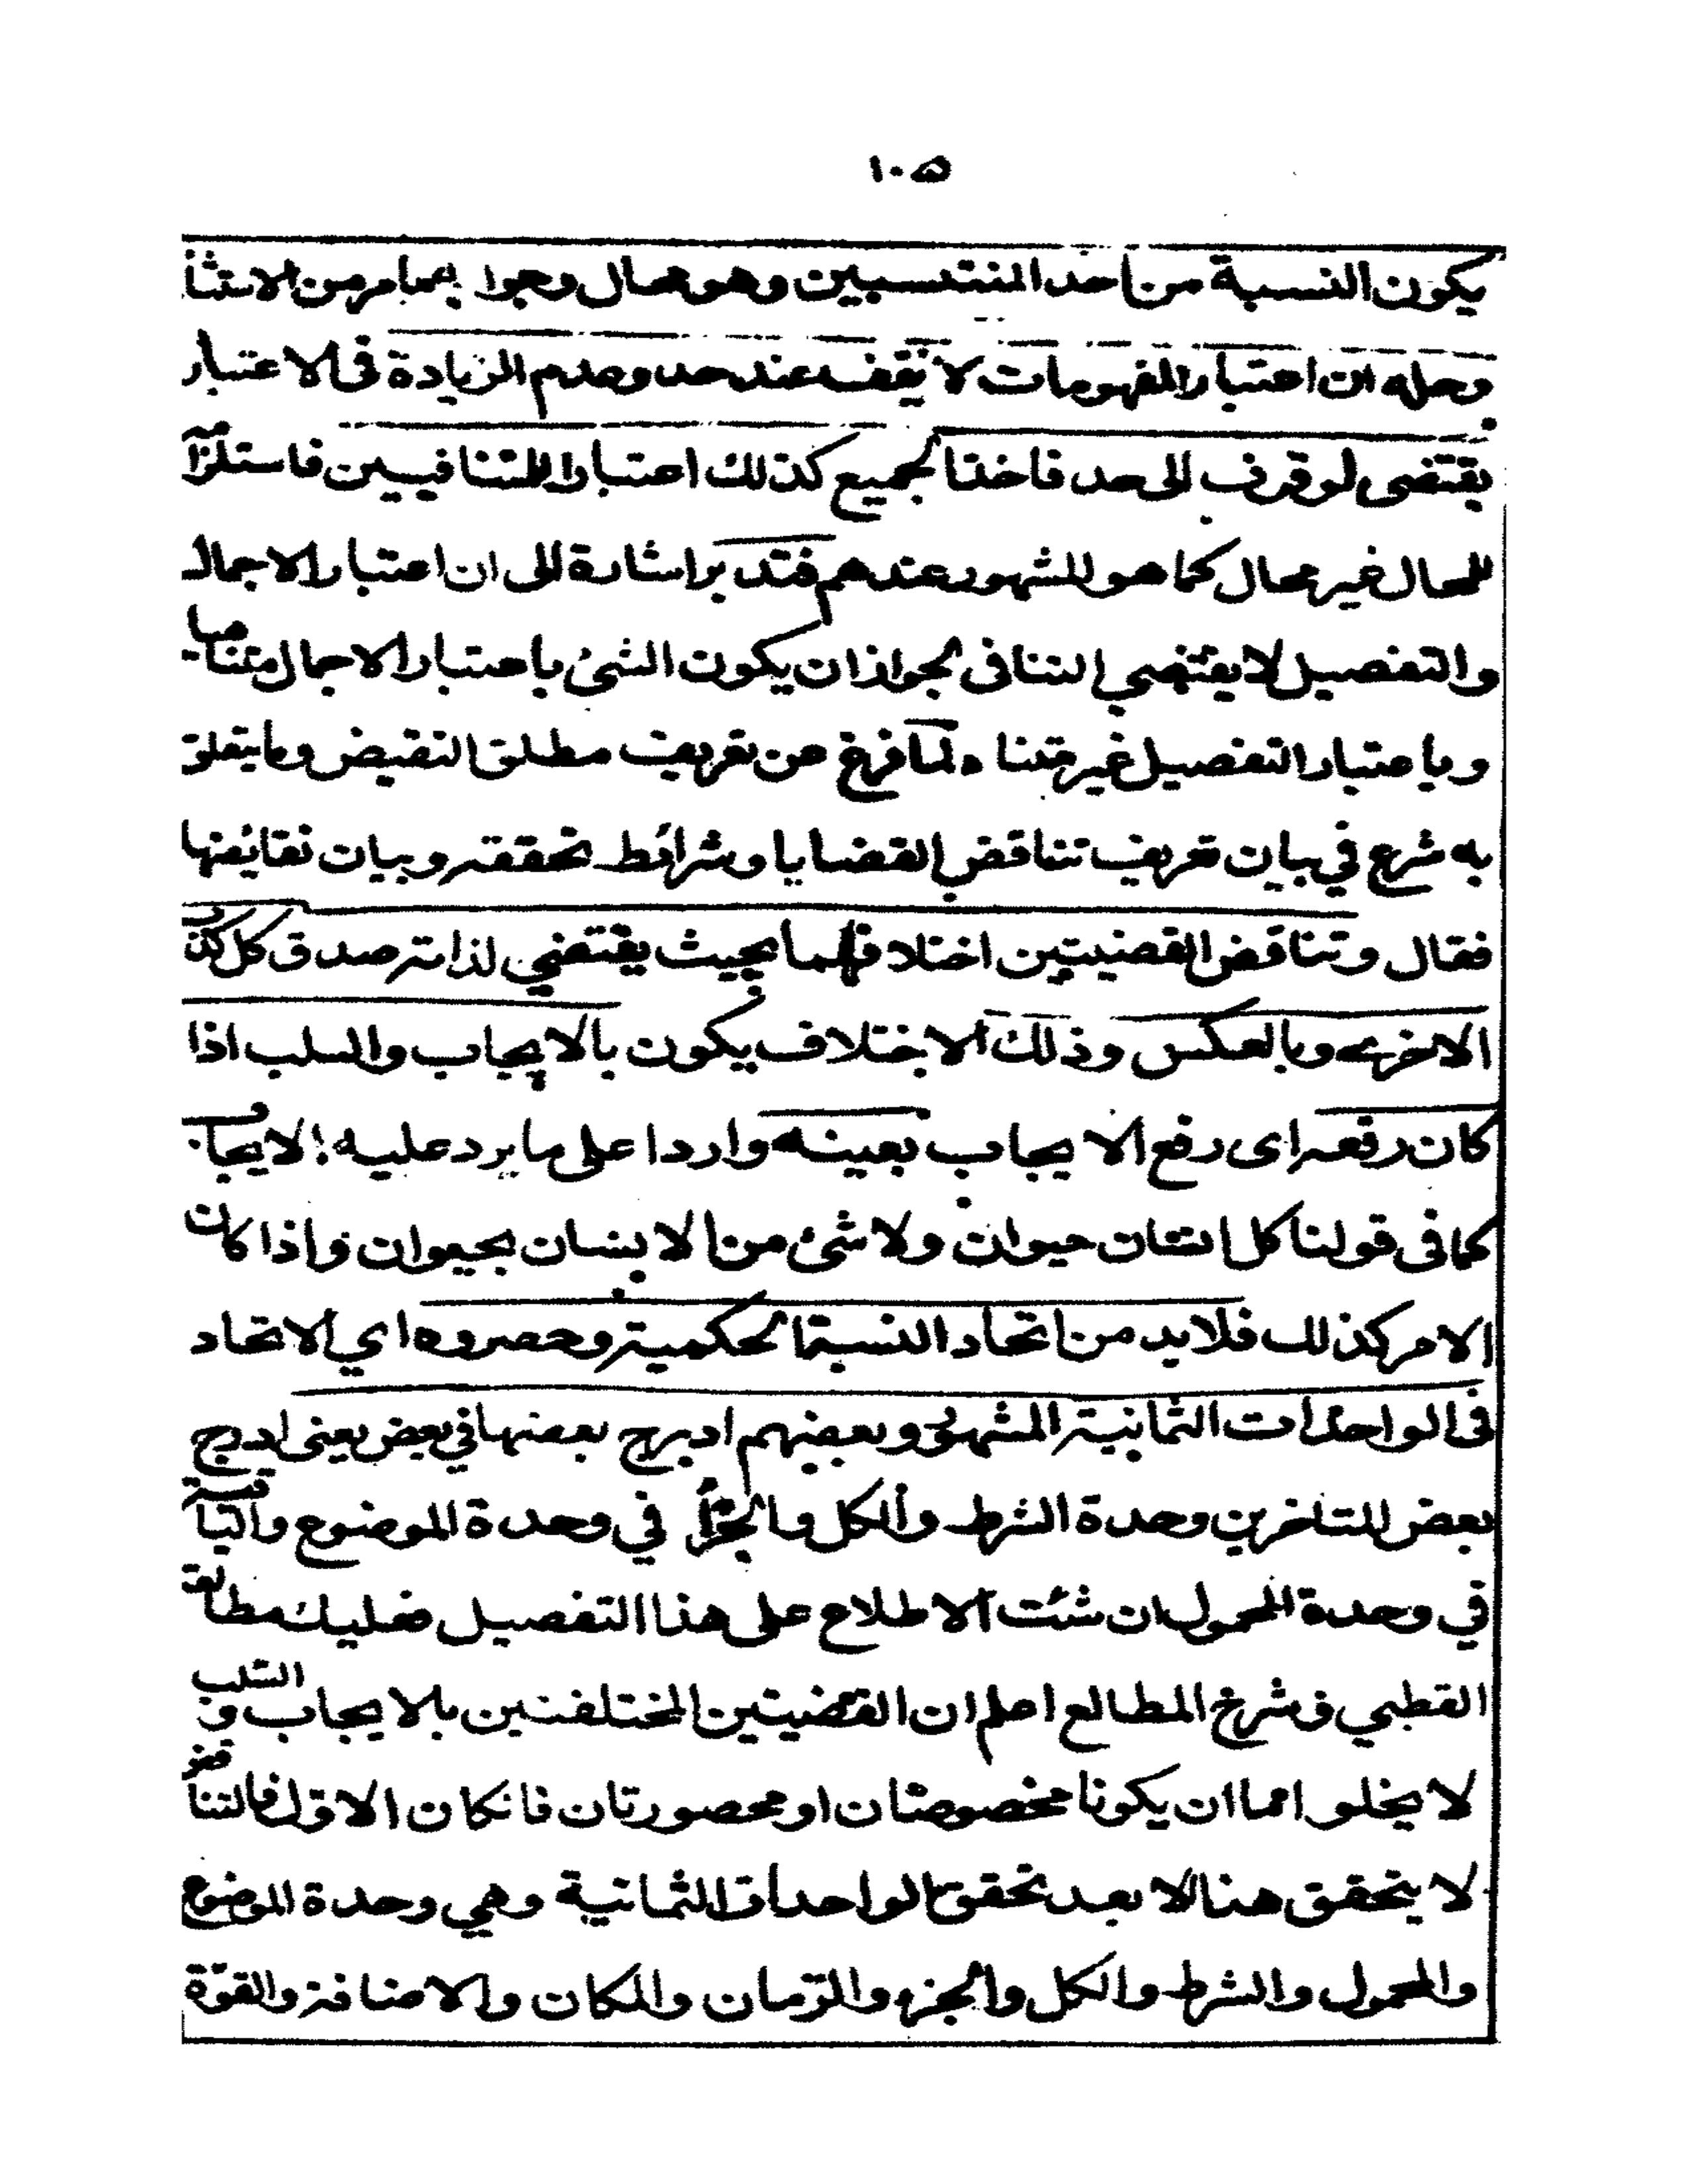 ١٠٥
يكون النسبة من احد المنتسبين وهو محال وجوا بهما مر من الاستثنا
وحله ان اعتبار المفهومات لا تقف عند حد وعدم الزيادة فى الاعتبار
يقتضى لوقوف الى حد فاخذ الجميع كذلك اعتبار المتنافيين فاستلزامه
المحال غير محال كما هو المشهور عندهم فتدبر اشارة الى ان اعتبار الاجمال
والتفصيل لا يقتضي التنافى لجواز ان يكون الشئ باعتبار الاجمال متناهيا
وباعتبار التفصيل غير متناه ولما فرغ عن تعريف مطلق النقيض وما يتعلق
به شرع في بيان تعريف تناقض القضايا وشرائط تحققه وبيان نقائضها
فقال وتناقض القضيتين اختلافهما بحيث يقتضي لذاته صدق كل كذب
الاخرى وبالعكس وذلك الاختلاف يكون بالايجاب والسلب اذا
كان رفعه اى رفع الايجاب بعينه واردا على ما يرد عليه الايجاب
كما فى قولنا كل انسان حيوان ولا شئ من الانسان بحيوان واذا كان
الامر كذلك فلابد من اتحاد النسبة الحكمية وحصروه اي الاتحاد
فى الواحدات الثمانية المشهورة وبعضهم ادرج بعضها في بعض يعنى ادرج
بعض المتاخرين وحدة الشرط والكل والجزأ في وحدة الموضوع والباقية
في وحدة المحمول ان شئت الاطلاع على هذا التفصيل فعليك مطالعة
القطبي وشرح المطالع اعلم ان القضيتين المختلفتين بالايجاب والسلب
لا يخلو اما ان يكونا مخصوصتان او محصورتان فانكان الاول فالتناقض
لا يتحقق هنا الا بعد تحقق الواحدات الثمانية وهي وحدة الموضوع
والمحمول والشرط والكل والجزء والزمان والمكان والاضافة والقوة